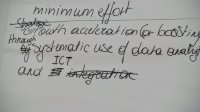 minimum effort
Growth acceleration (or boosting
through Systematic use of data analy
and ICT integration